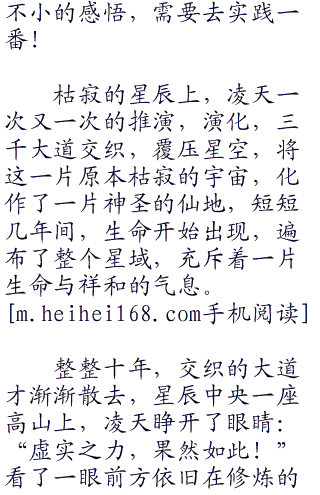 不小的感悟，需要去实践一
番！
枯寂的星辰上，凌天一
次又一次的推演，演化，三
千大道交织，覆压星空，将
这一片原本枯寂的宇宙，化
作了一片神圣的仙地，短短
几年间，生命开始出现，遍
布了整个星域，充斥着一片
生命与祥和的气息。
[m.heihei168.com手机阅读]
整整十年，交织的大道
才渐渐散去，星辰中央一座
高山上，凌天睁开了眼睛：
“虚实之力，果然如此！”
看了一眼前方依旧在修炼的